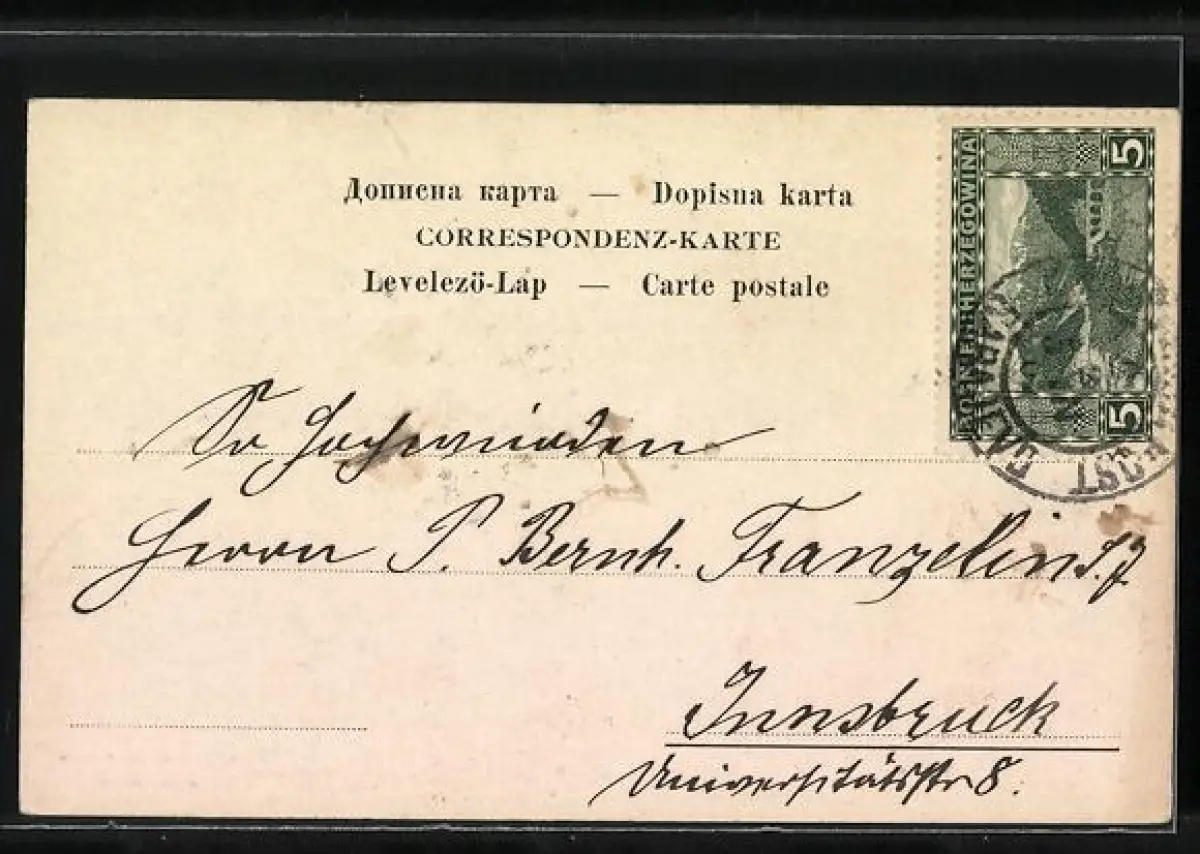 Дописна карта — Dopisna karta
CORRESPONDENZ-KARTE
Levelező-Lap — Carte postale
5
BOSNIEN HERZEGOWINA
5
Sr Hochwürden
Herrn P. Bernh. Franzelin S. J.
Innsbruck
Universitätsstr 8.